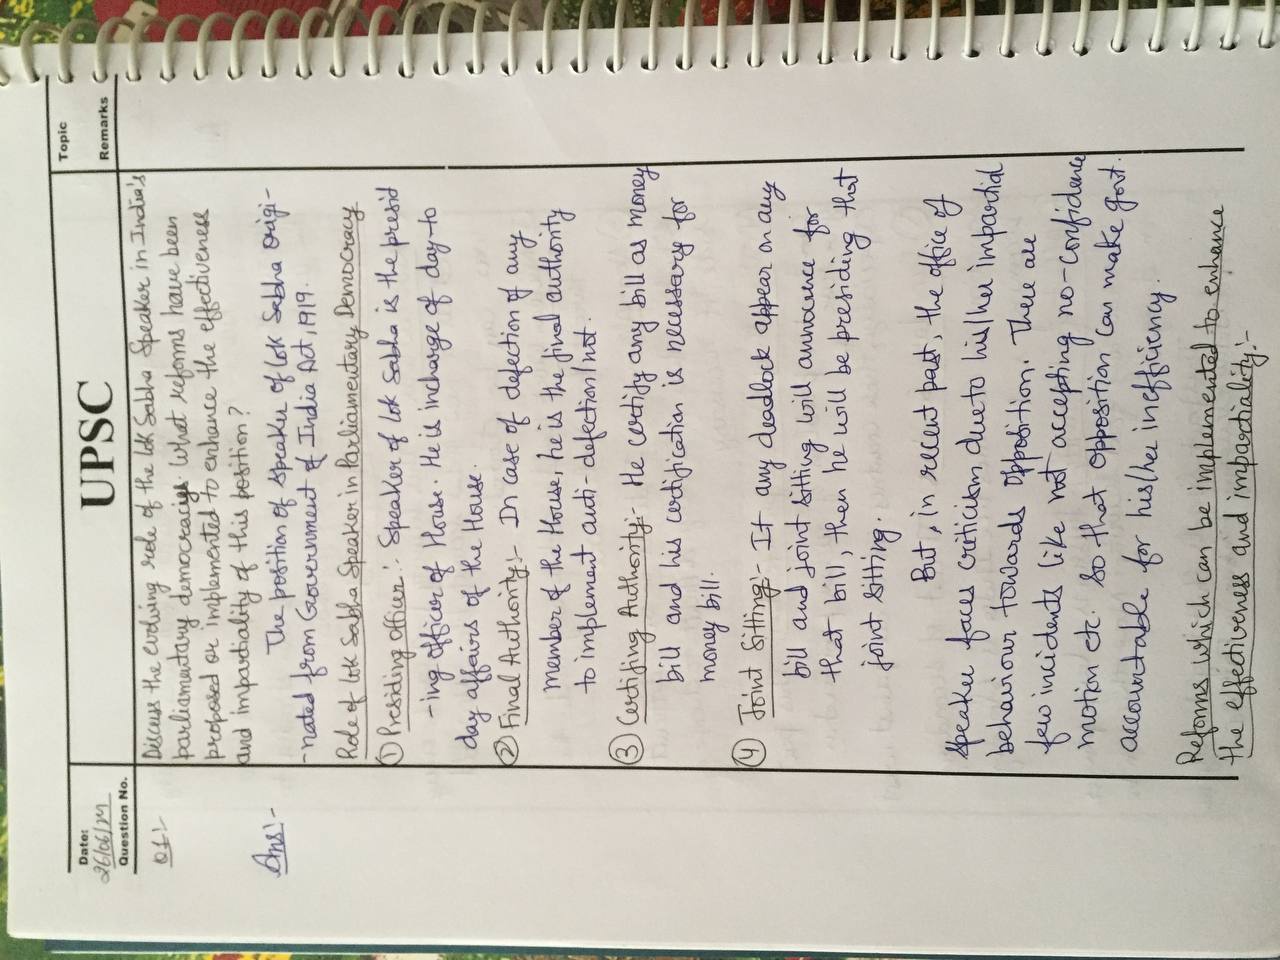 UPSC
Topic
Remarks
Date:
26/06/24
Question No.
Q1:-
Discuss the evolving role of the Lok Sabha Speaker in India's
parliamentary democracy. What reforms have been
proposed or implemented to enhance the effectiveness
and impartiality of this position?
Ans:-
The position of Speaker of Lok Sabha origi-
-nated from Government of India Act, 1919.
Role of Lok Sabha Speaker in Parliamentary Democracy
① Presiding Officer:- Speaker of Lok Sabha is the presid
-ing officer of House. He is incharge of day-to
day affairs of the House.
② Final Authority:- In case of defection of any
member of the House, he is the final authority
to implement anti-defection/not.
③ Certifing Authority:- He certify any bill as money
bill and his certification is necessary for
money bill.
④ Joint Sitting:- If any deadlock appear on any
bill and joint sitting will announce for
that bill, then he will be presiding that
joint sitting.
But, in recent past, the office of
Speaker faces criticism due to his/her impartial
behaviour towards Opposition. There are
few incidents like not accepting no-confidence
motion etc. So that opposition can make govt.
accountable for his/her inefficiency.
Reforms which can be implemented to enhance
the effectiveness and impartiality:-